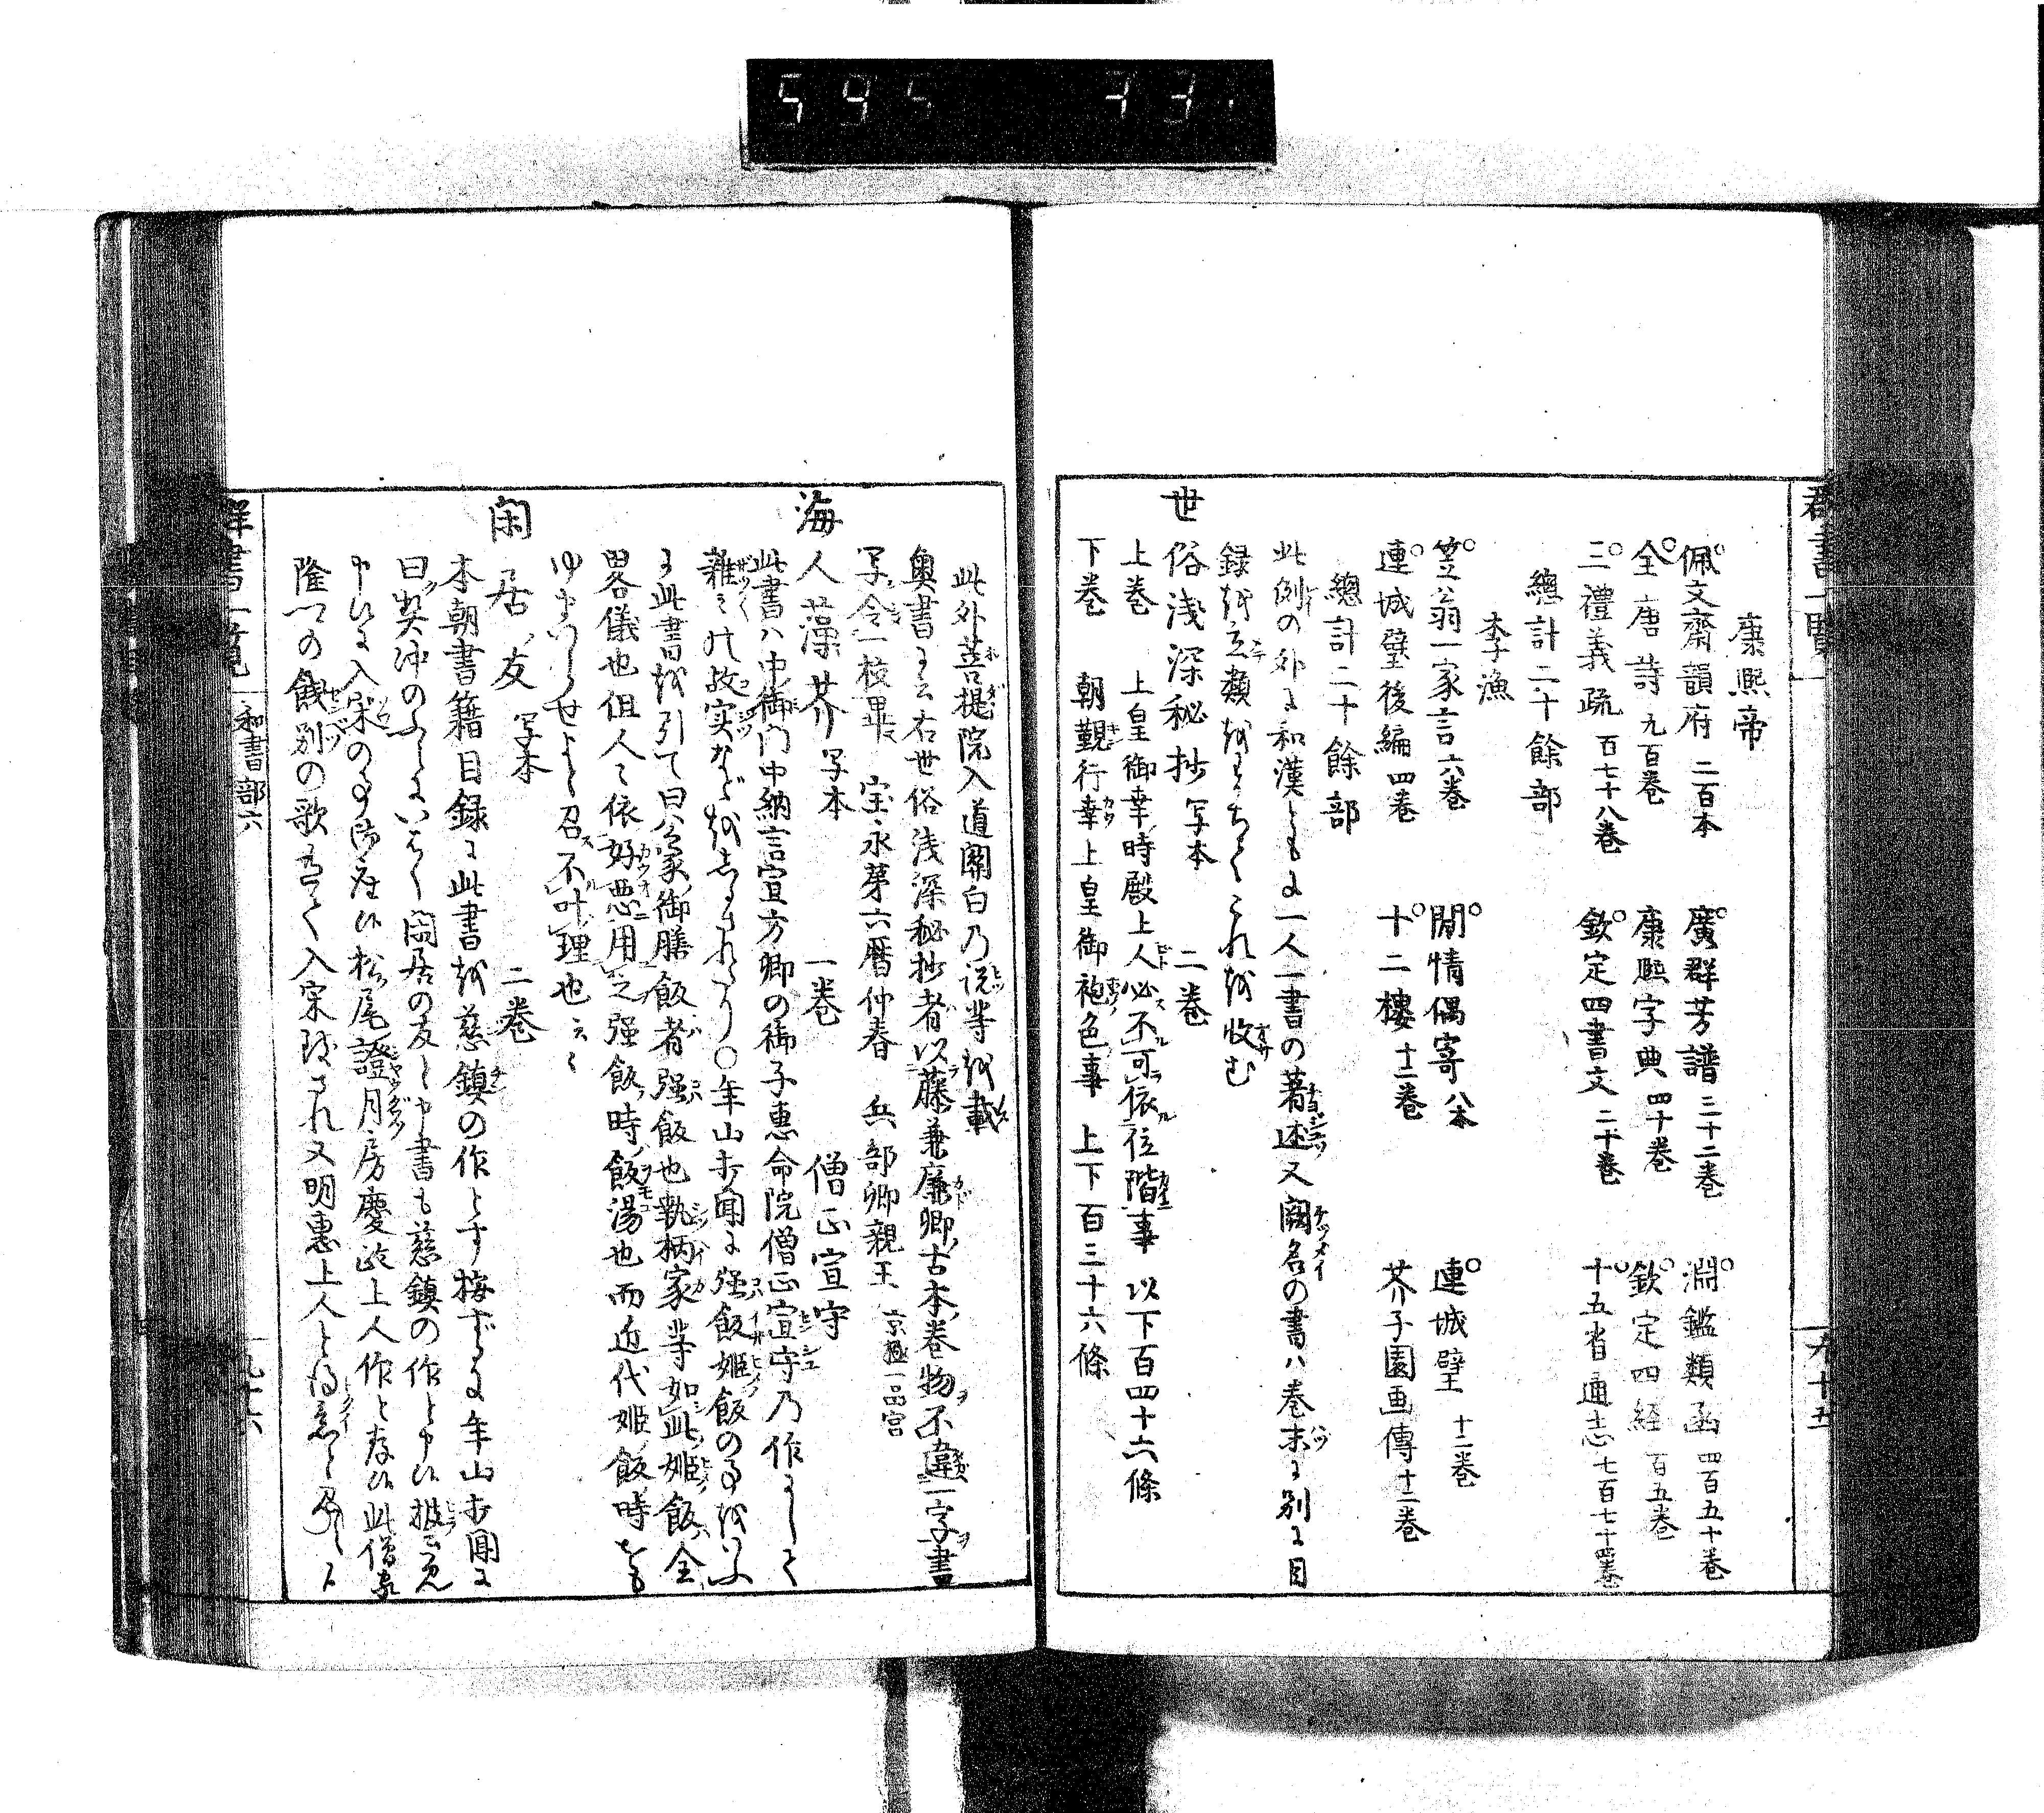 595 33
群書一覧
九十五
康熙帝
佩文齋韻府 二百本 廣群芳譜 三十二巻 淵鑑類函 四百五十巻
全唐詩 九百巻 康熙字典 四十巻 欽定四経 百五巻
三禮義疏 百七十八巻 欽定四書文 二十巻 十五省通志 七百七十四巻
總計二十餘部
李漁
笠翁一家言 六巻 閒情偶寄 八本 連城璧 十二巻
連城璧後編 四巻 十二樓 十二巻 芥子園画傳 十二巻
總計二十餘部
此例の外に和漢ともに一人一書の著述又闕名の書ハ巻末に別に目
録を立類をわかちてこれを収む
世俗浅深秘抄 写本 二巻
上巻 上皇御幸ノ時殿上人必不可依位階事 以下百四十六條
下巻 朝覲行幸上皇御袍色事 上下百三十六條
此外菩提院入道關白乃説等を載
奥書に云右世俗浅深秘抄者以藤兼廉卿古本巻物不違一字書
写令一校畢 宝永第六暦仲春 兵部卿親王 京極一品宮
海人藻芥 写本 一巻 僧正宣守
此書ハ中御門中納言宣方卿の御子恵命院僧正宣守乃作にして
雑々の故実などをしるされたり○年山紀聞に強飯姫飯の事をいふ
に此書を引て曰ハ公家御膳飯者強飯也執柄家等如此姫飯全
畧儀也但人々依好悪用之强飯時飯湯也而近代姫飯時も
ゆまいらせよと召不叶理也云々
閑居友 写本 二巻
本朝書籍目録に此書を慈鎮の作とす按ずるに年山紀聞に
曰契沖のふみにいはく閑居の友と申書も慈鎮の作と申候披見
申候に入宋の事御座候松尾證月房慶政上人作と存候此僧家
隆つの餞別の歌ありて入宋致され又明恵上人と得意と
群書一覧
和書部六
九十六